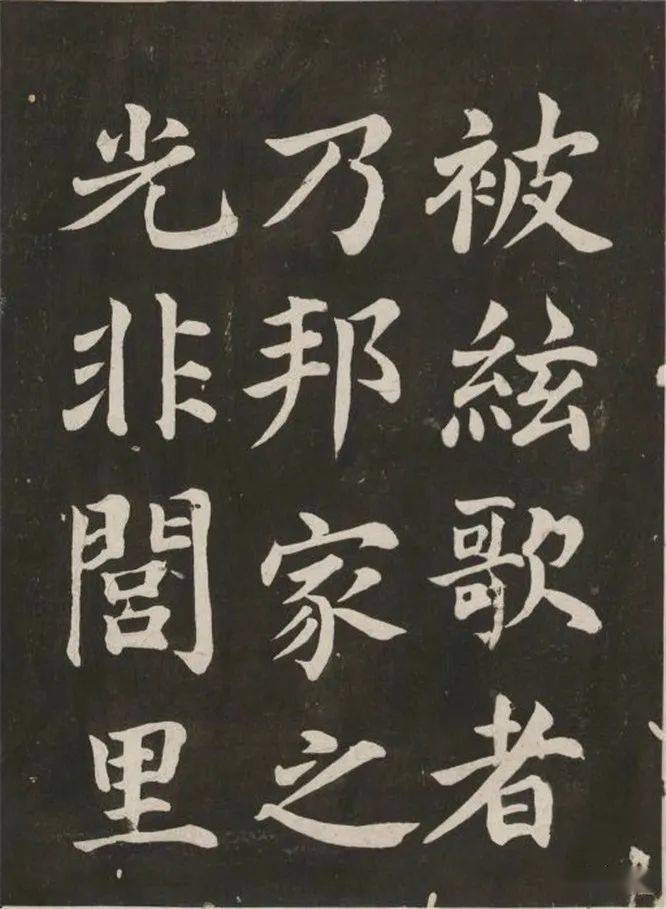 被絃歌者
乃邦家之
光非閭里